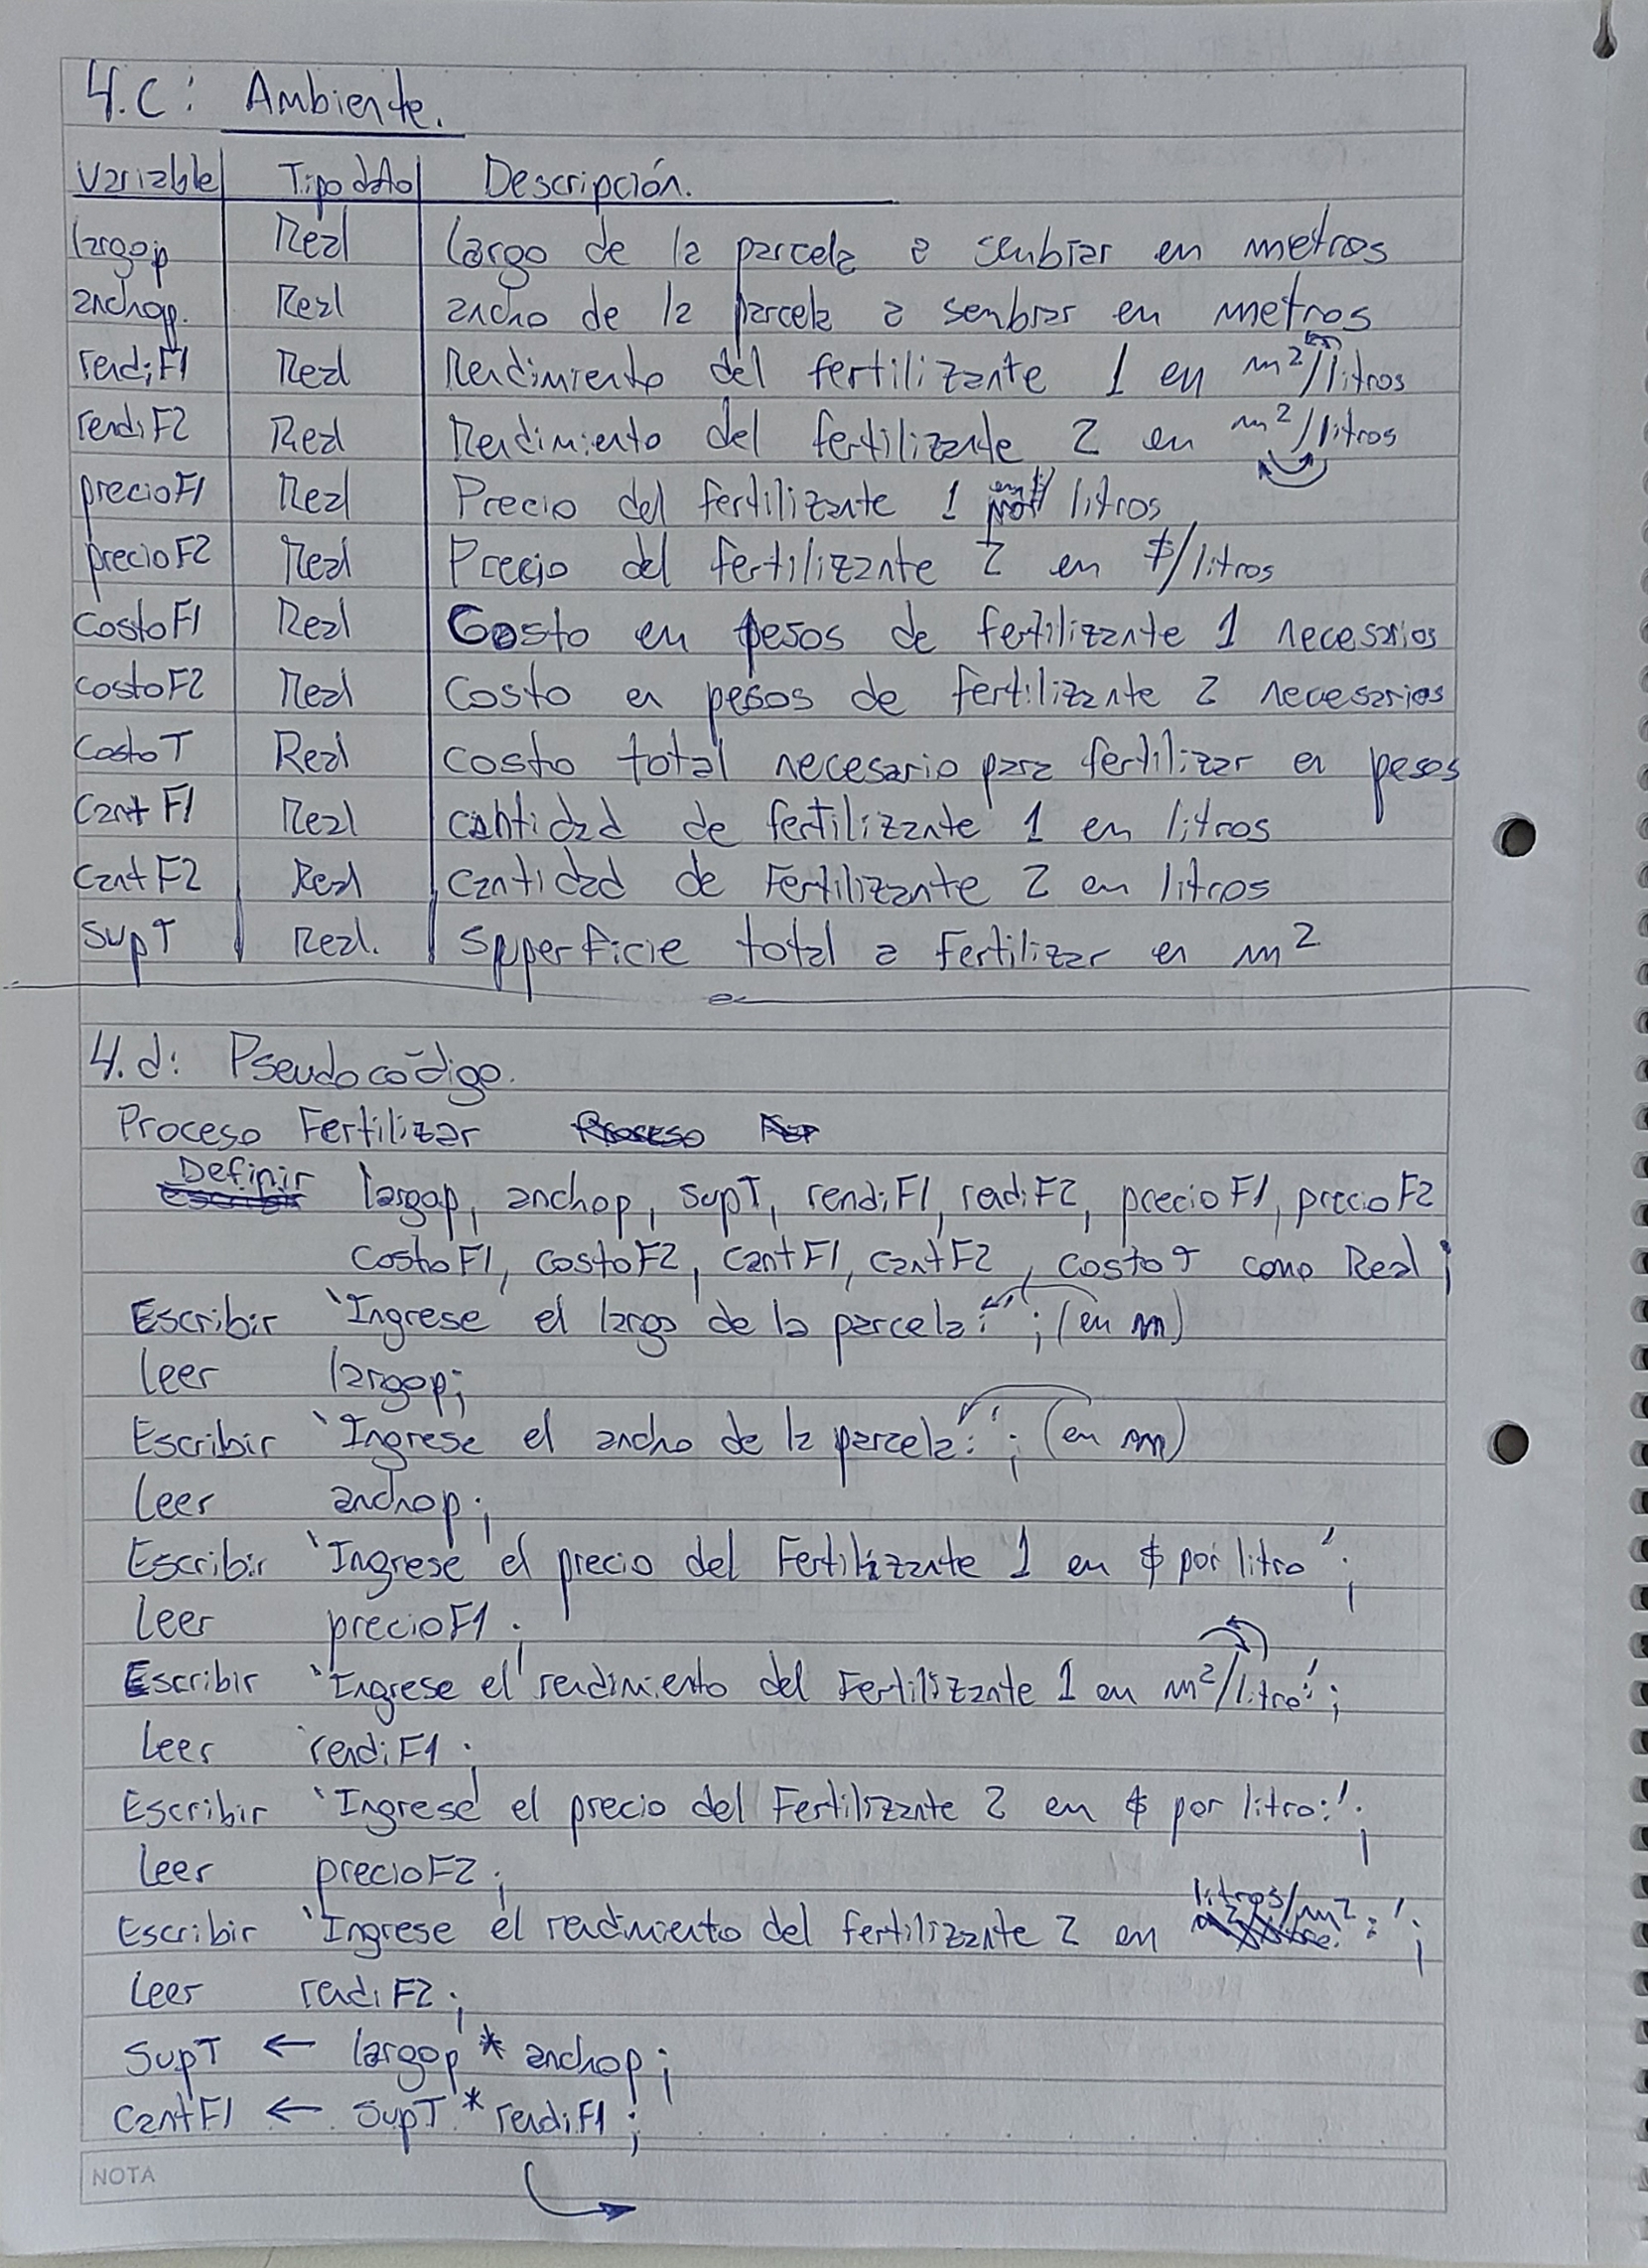 4.c: Ambiente.
Variable Tipo dato Descripción.
largop Real largo de la parcela a senbrar en metros
anchop. Real ancho de la parcela a senbrar en metros
rendiF1 Real Rendimiento del fertilizante 1 en m²/litros
rendiF2 Real Rendimiento del fertilizante 2 en m²/litros
precioF1 Real Precio del fertilizante 1 litros
precioF2 Real Precio del fertilizante 2 en $/litros
CostoF1 Real Costo en pesos de fertilizante 1 necesarios
costoF2 Real Costo en pesos de fertilizante 2 necesarios
CostoT Real costo total necesario para fertilizar en pesos
Cant F1 Real cantidad de fertilizante 1 en litros
cant F2 Real cantidad de Fertilizante 2 en litros
SupT Real. Superficie total a Fertilizar en m²
4.d: Pseudocódigo.
Proceso Fertilizar
Definir largop, anchop, SupT, rendiF1, rendiF2, precioF1, precioF2
CostoF1, costoF2, cantF1, cantF2, costoT como Real;
Escribir 'Ingrese el largo de la parcela:'; (en m)
leer largop;
Escribir 'Ingrese el ancho de la parcela:'; (en m)
Leer anchop;
Escribir 'Ingrese el precio del Fertilizante 1 en $ por litro';
leer precioF1;
Escribir 'Ingrese el rendimiento del Fertilizante 1 en m²/litro:';
Leer rendiF1;
Escribir 'Ingrese el precio del Fertilizante 2 en $ por litro:';
leer precioF2;
Escribir 'Ingrese el rendimiento del fertilizante 2 en litros/m²:';
Leer rendiF2;
SupT ← largop * anchop;
CantF1 ← SupT * rendiF1;
NOTA